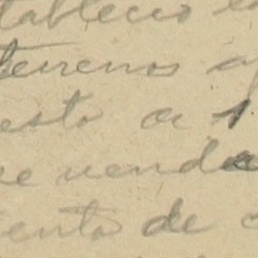 tablecio
terrenos a
esto a
se venda
iento de c